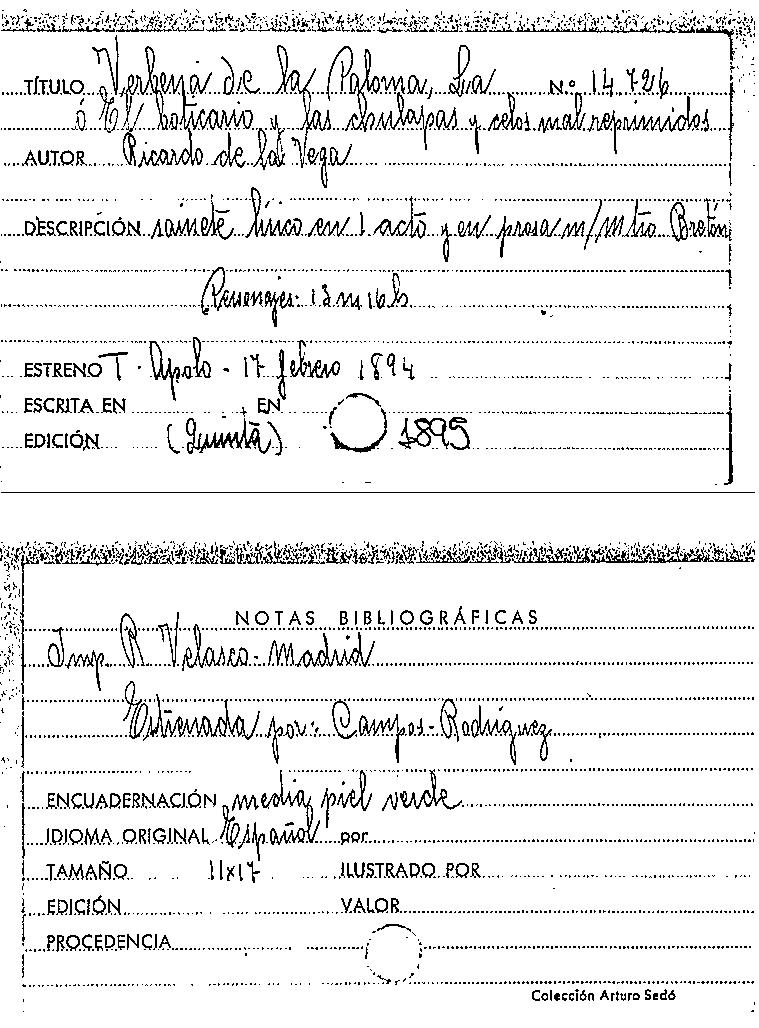 TÍTULO Verbena de la Paloma, La Nº 14.726
ó El boticario y las chulapas y celos mal reprimidos
AUTOR Ricardo de la Vega
DESCRIPCIÓN sainete lírico en 1 acto y en prosa m/ Mtro Bretón
Personajes - 13 m 16 h
ESTRENO T. Apolo - 17 febrero 1894
ESCRITA EN EN
EDICIÓN (Quinta) 1895
NOTAS BIBLIOGRÁFICAS
Imp. R Velasco - Madrid
Estrenada por: Campos - Rodríguez
ENCUADERNACIÓN media piel verde
IDIOMA ORIGINAL Español por
TAMAÑO 11x17 ILUSTRADO POR
EDICIÓN VALOR
PROCEDENCIA
Colección Arturo Sedó